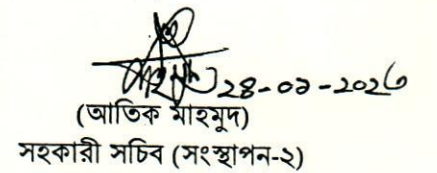 ২৪-০১-২০২৬
(আতিক মাহমুদ)
সহকারী সচিব (সংস্থাপন-২)